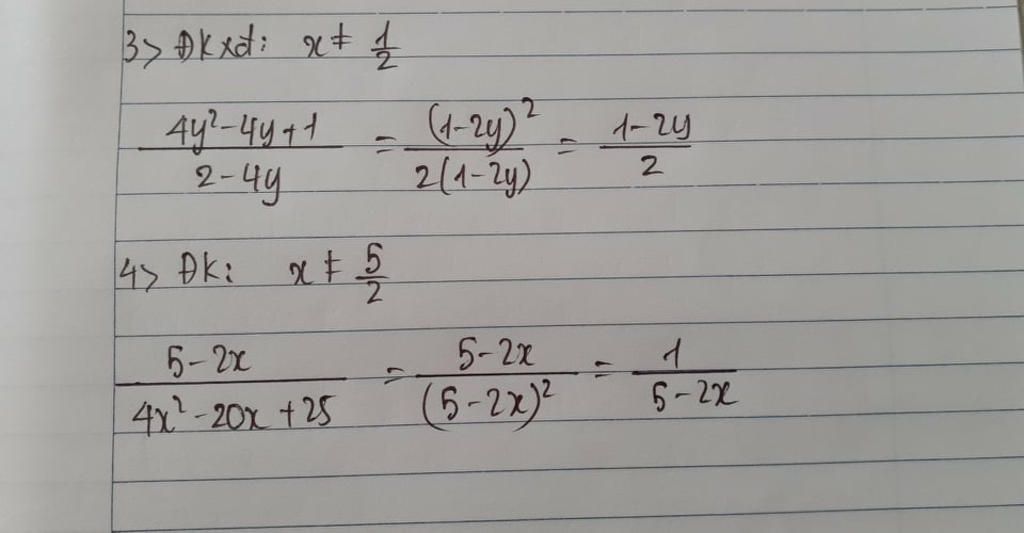 3> ĐKxđ: x ≠ 1/2
(4y²-4y+1)/(2-4y) = (1-2y)²/(2(1-2y)) = (1-2y)/2
4> ĐK: x ≠ 5/2
(5-2x)/(4x²-20x+25) = (5-2x)/(5-2x)² = 1/(5-2x)